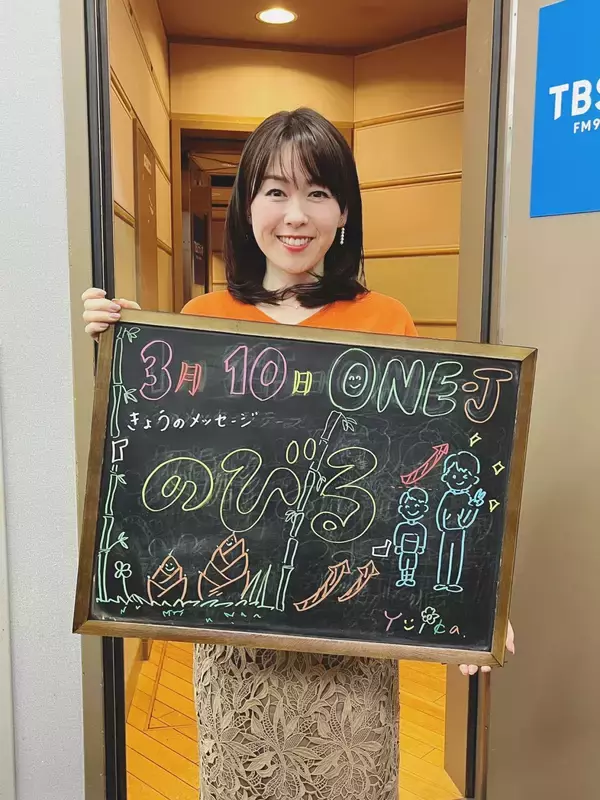 3月10日 ONE-J
きょうのメッセージ
『のびる』
Yuika.
TBS
FM9